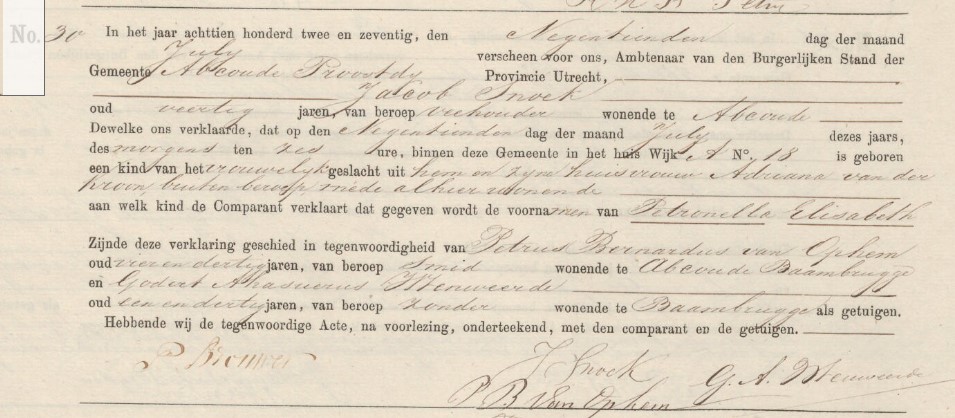 No. 30 In het jaar achttien honderd twee en zeventig, den Negentienden dag der maand
July verscheen voor ons, Ambtenaar van den Burgerlijken Stand der
Gemeente Abcoude Proostdy Provincie Utrecht,
Jacob Snoek
oud veertig jaren, van beroep veehouder wonende te Abcoude
Dewelke ons verklaarde, dat op den Negentienden dag der maand July dezes jaars,
des morgens ten zes ure, binnen deze Gemeente in het huis Wijk A No. 18 is geboren
een kind van het vrouwelyk geslacht uit hem en zyne huisvrouw Adriana van der
Kroon buiten beroep mede alhier wonende
aan welk kind de Comparant verklaart dat gegeven wordt de voornamen van Petronella Elisabeth
Zijnde deze verklaring geschied in tegenwoordigheid van Petrus Bernardus van Ophem
oud vier en dertig jaren, van beroep Smid wonende te Abcoude Baambrugge
en Godert Ahasuerus
oud een en dertig jaren, van beroep zonder wonende te Baambrugge als getuigen.
Hebbende wij de tegenwoordige Acte, na voorlezing, onderteekend, met den comparant en de getuigen.
P. Brouwer
J Snoek
G. A.
P B van Ophem